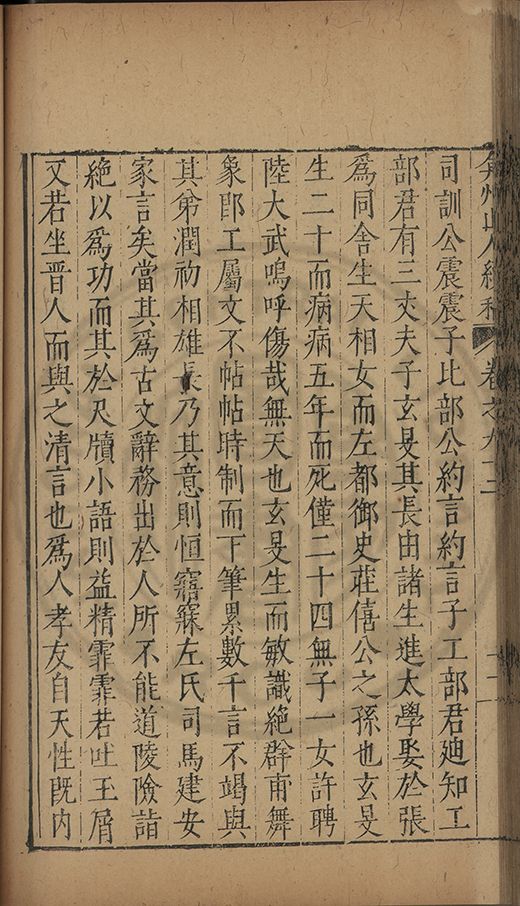 弇州山人續稿 卷之九十二
司訓公震震子比部公約言約言子工部君廸知工
部君有三丈夫子玄旻其長由諸生進太學娶於張
爲同舍生天相女而左都御史莊僖公之孫也玄旻
生二十而病病五年而死僅二十四無子一女許聘
陸大武嗚呼傷哉無天也玄旻生而敏識絶群甫舞
象卽工屬文不帖帖時制而下筆累數千言不竭與
其弟潤初相雄長乃其意則恒寤寐左氏司馬建安
家言矣當其爲古文辭務出於人所不能道陵險詣
絶以爲功而其於尺牘小語則益精霏霏若吐玉屑
又若坐晉人而與之清言也爲人孝友自天性旣内